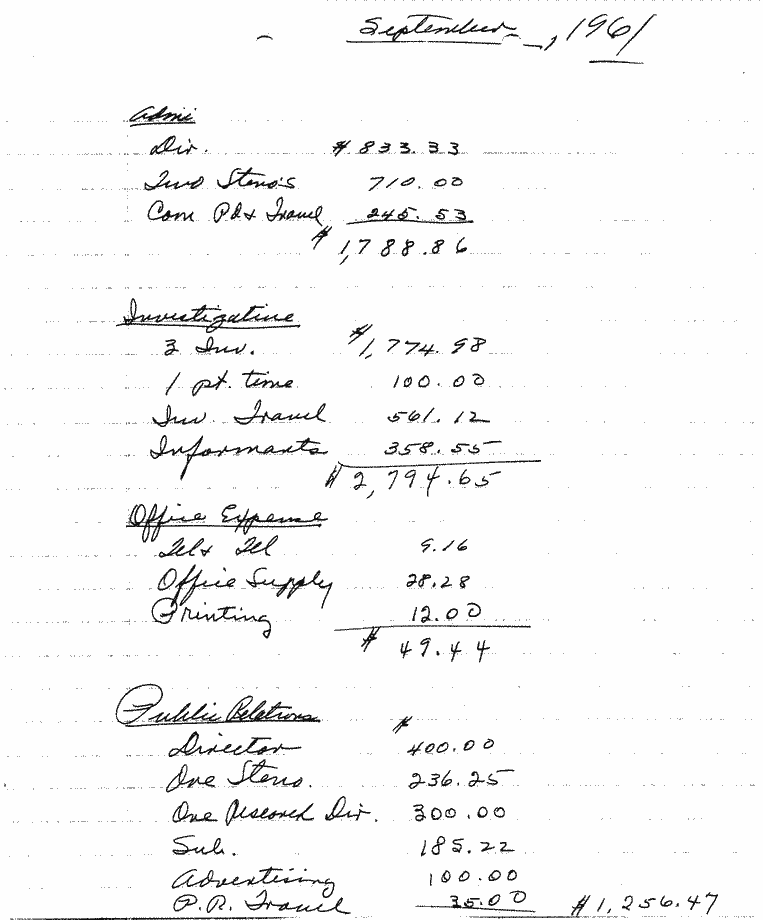 September, 1961
Admi
Dir. $833.33
Two Steno's 710.00
Com Pd & Travel 245.53
$1,788.86
Investigative
3 Inv. $1,774.98
1 pt. time 100.00
Inv. Travel 561.12
Informants 358.55
$2,794.65
Office Expense
Tel & Tel 9.16
Office Supply 28.28
Printing 12.00
$49.44
Public Relations $
Director 400.00
One Steno. 236.25
One Research Dir. 300.00
Sub. 185.22
Advertising 100.00
P.R. Travel 35.00 $1,256.47